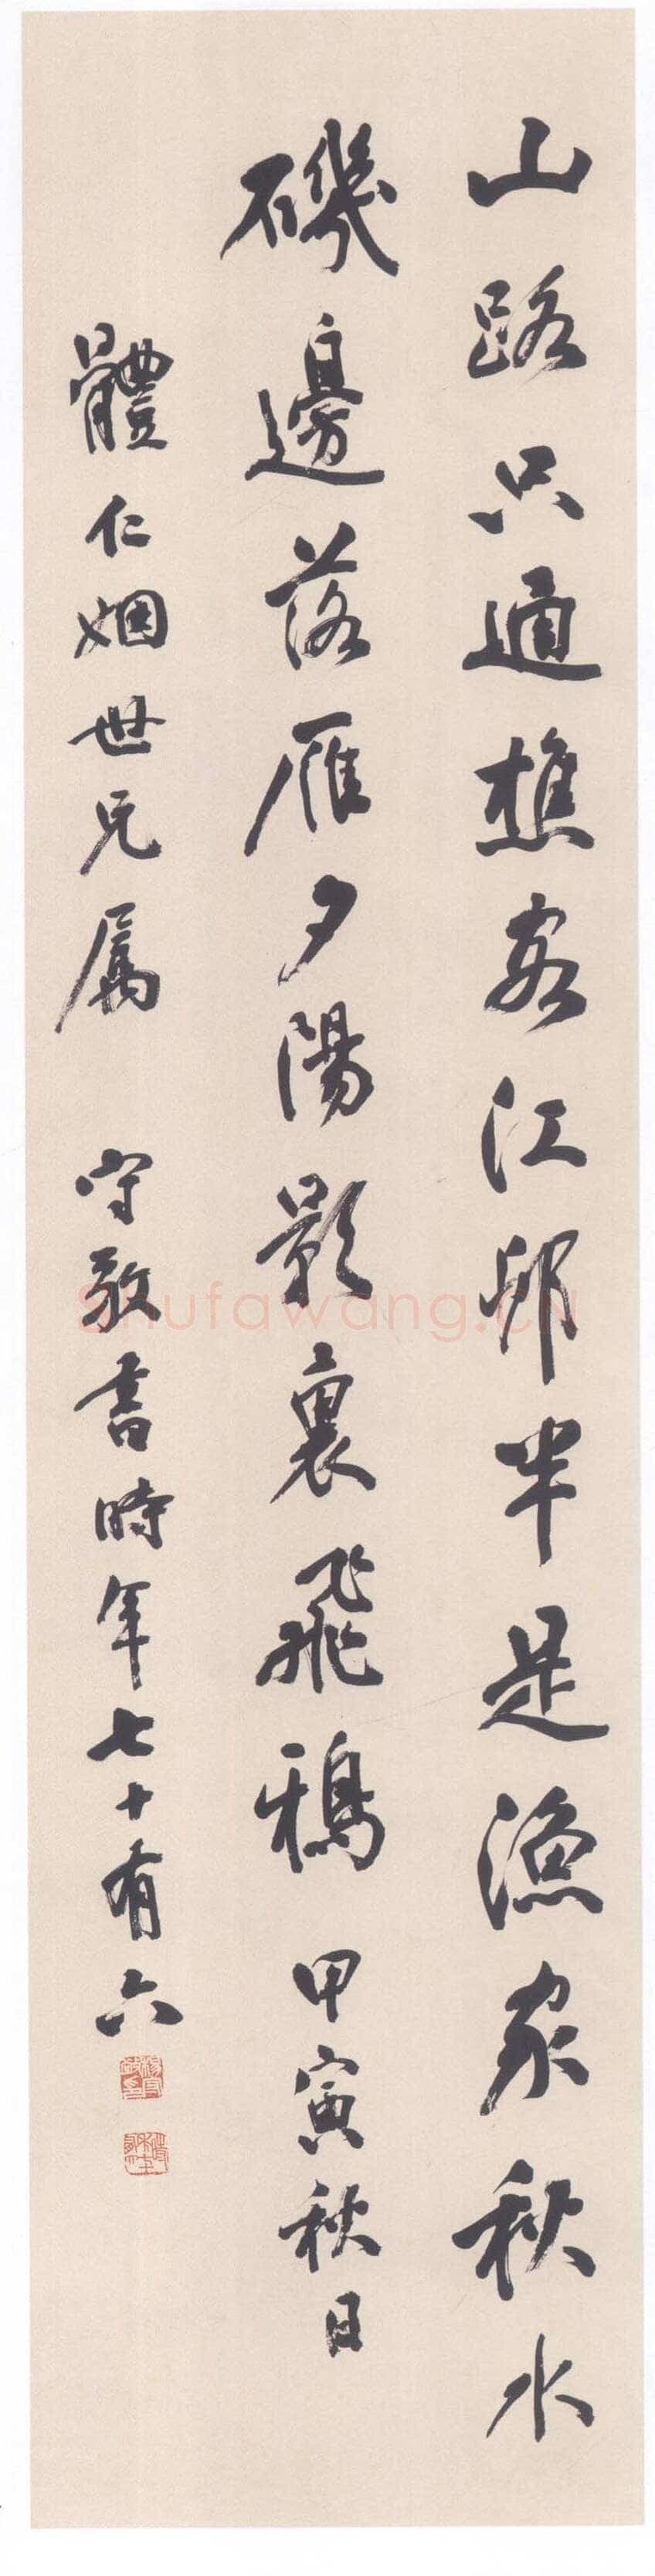 山路只通樵客江邨半是漁家秋水
磯邊落雁夕陽影裏飛鴉 甲寅秋日
體仁姻世兄属 守敬書時年七十有六
shufawang.cn